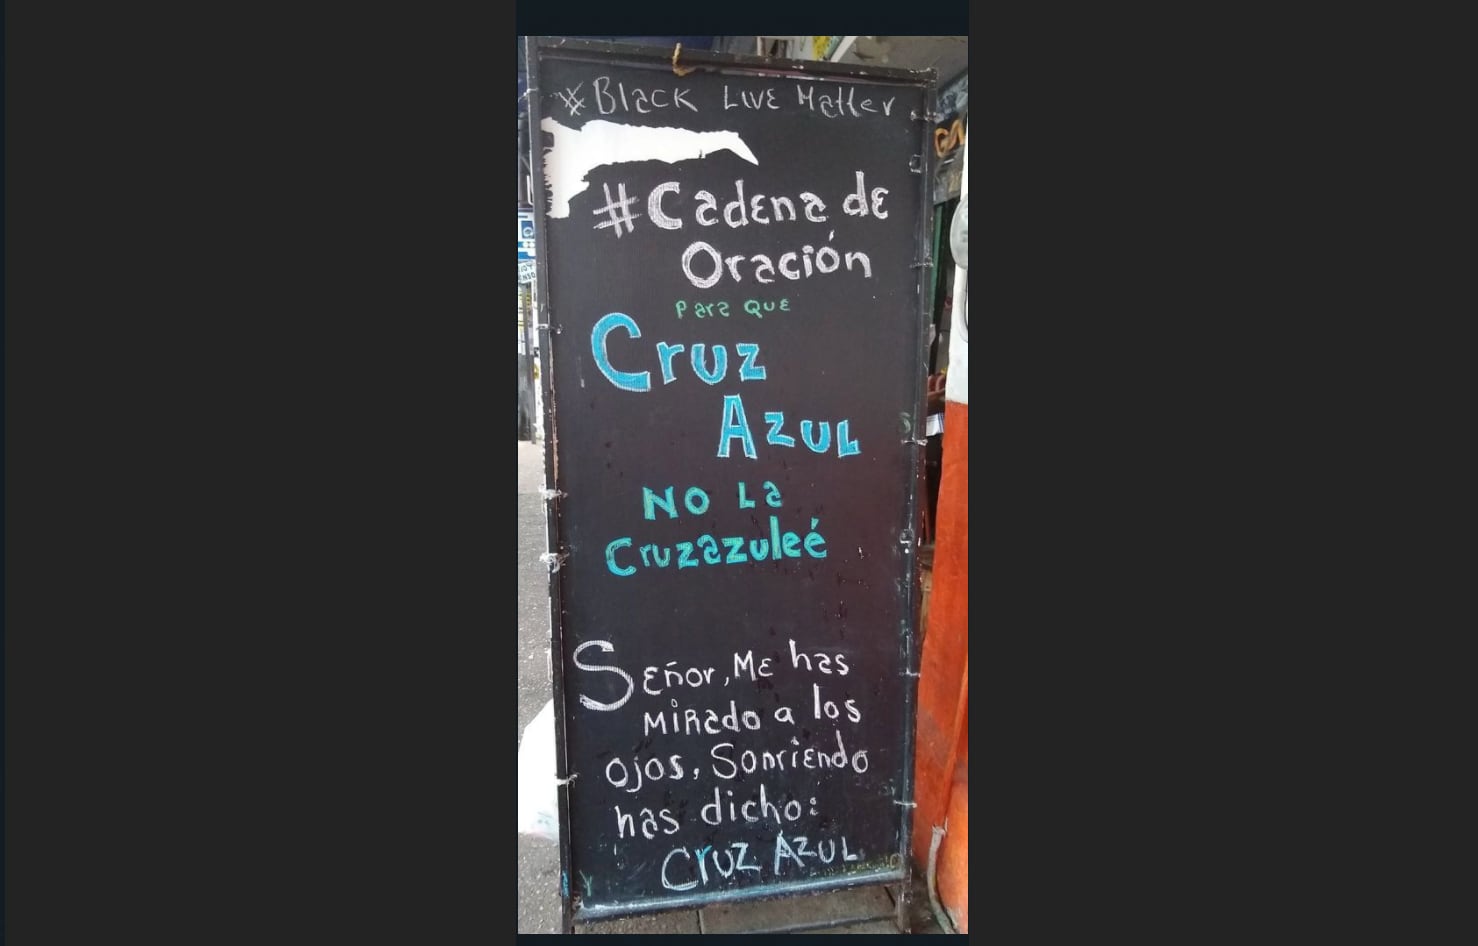 #Black Live Matter
#Cadena de
Oración
Para que
Cruz
Azul
No La
Cruzazuleé
Señor, Me has
mirado a los
ojos, Sonriendo
has dicho:
Cruz Azul